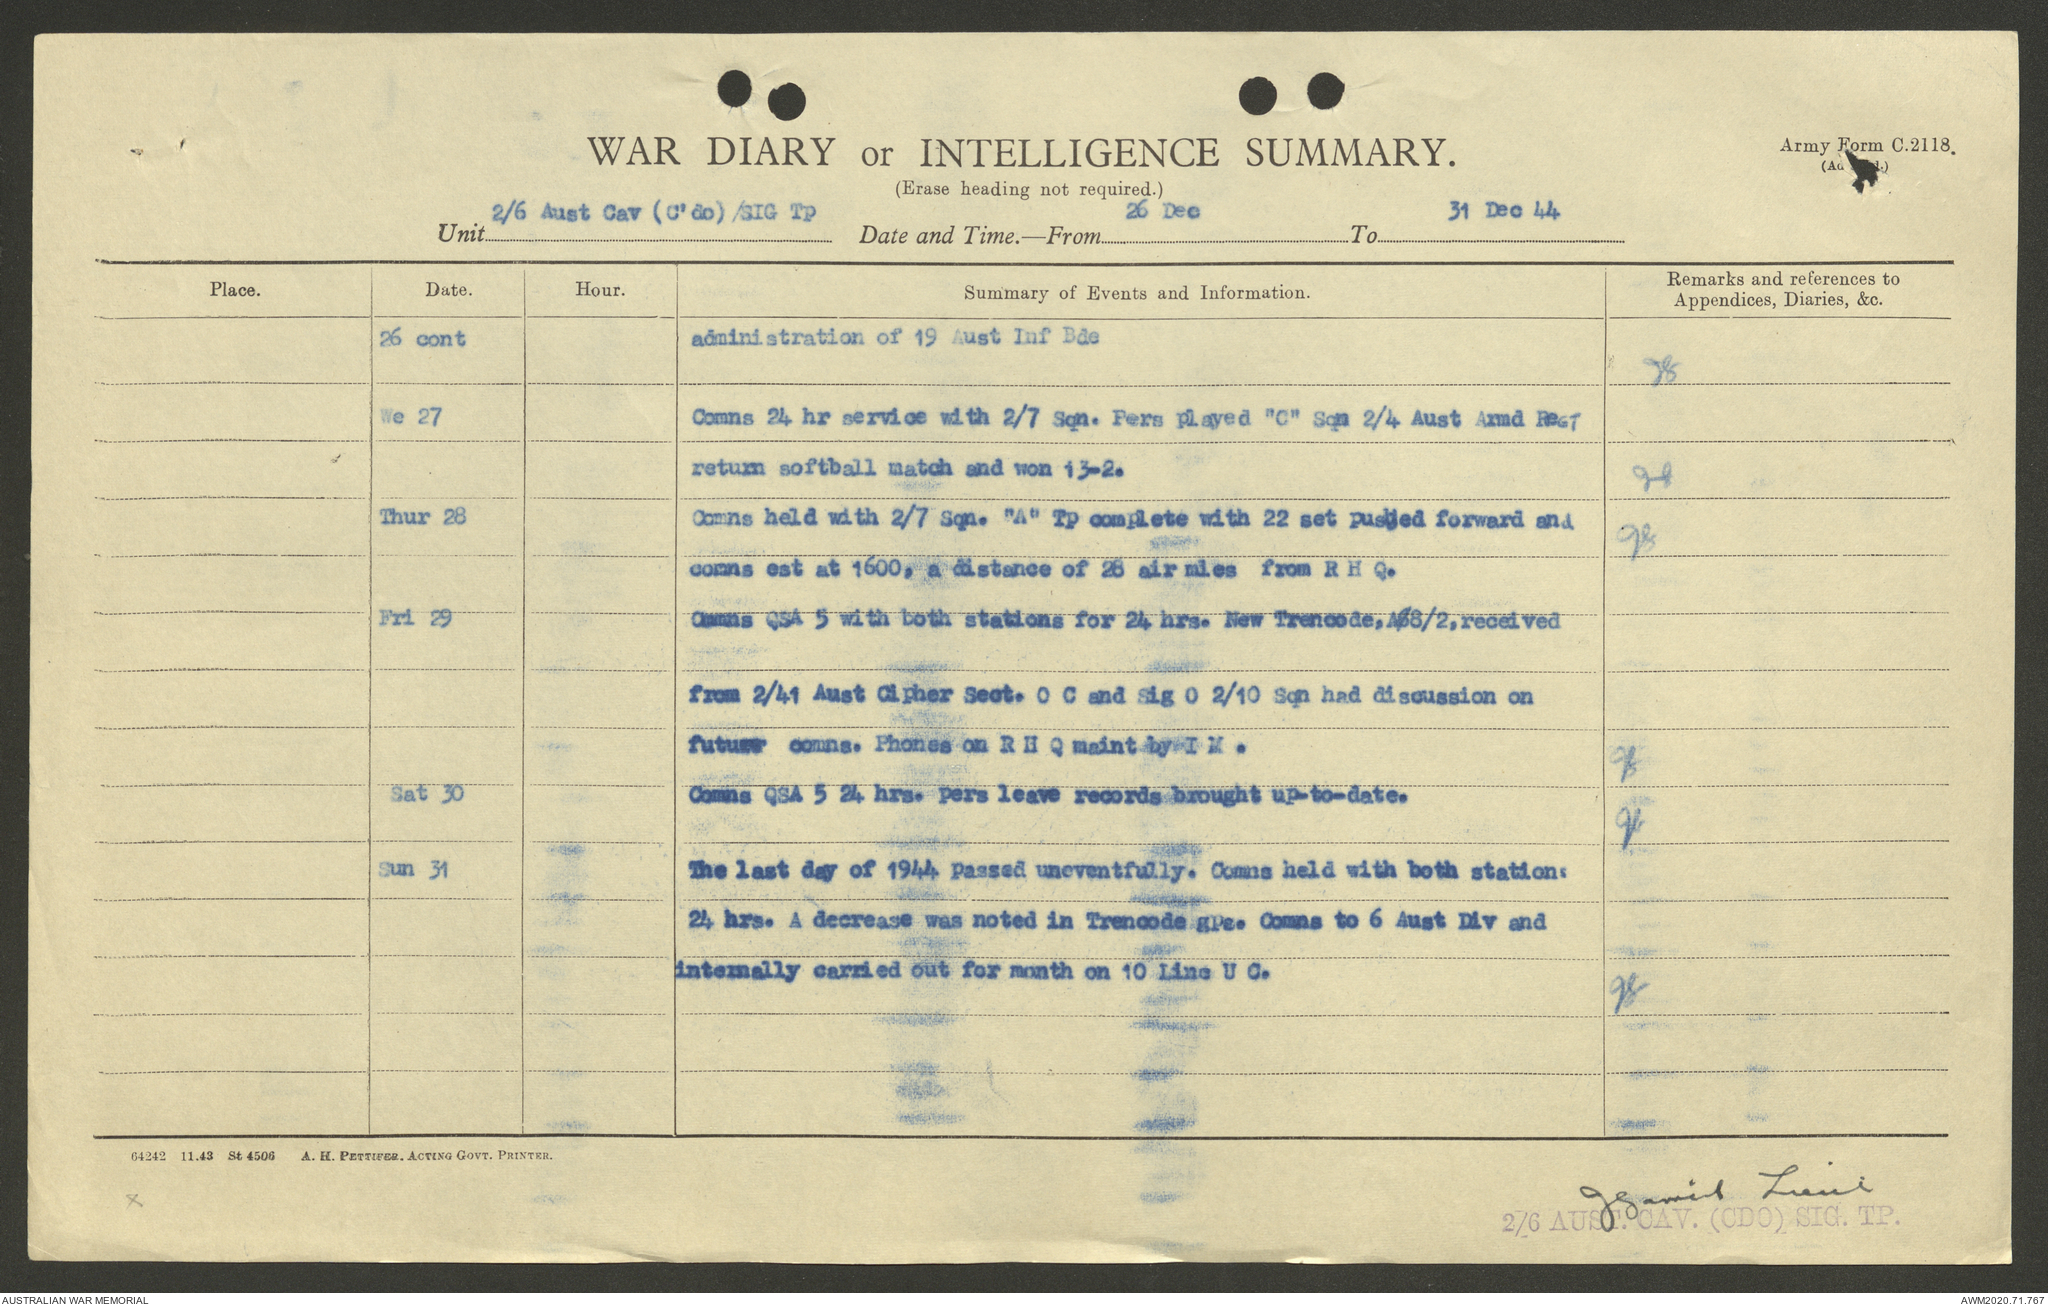 WAR DIARY or INTELLIGENCE SUMMARY.
Army Form C.2118.
(Erase heading not required.)
Unit 2/6 Aust Cav (C'do)/SIG Tp Date and Time.—From 26 Dec To 31 Dec 44
Place. Date. Hour. Summary of Events and Information. Remarks and references to Appendices, Diaries, &c.
26 cont administration of 19 Aust Inf Bde
We 27 Comns 24 hr service with 2/7 Sqn. Pers played "C" Sqn 2/4 Aust Armd Regt
return softball match and won 13-2.
Thur 28 Comns held with 2/7 Sqn. "A" Tp complete with 22 set pushed forward and
comns est at 1600, a distance of 28 air miles from R H Q.
Fri 29 Comns QSA 5 with both stations for 24 hrs. New Trencode, AØ8/2, received
from 2/41 Aust Cipher Sect. O C and Sig O 2/10 Sqn had discussion on
future comns. Phones on R H Q maint by I M .
Sat 30 Comns QSA 5 24 hrs. pers leave records brought up-to-date.
Sun 31 The last day of 1944 passed uneventfully. Comns held with both stations
24 hrs. A decrease was noted in Trencode gps. Comns to 6 Aust Div and
internally carried out for month on 10 Line U C.
64242 11.43 St 4506 A. H. PETTIFER, ACTING GOVT. PRINTER.
Lieut
2/6 AUST. CAV. (CDO) SIG. TP.
AUSTRALIAN WAR MEMORIAL
AWM2020.71.767